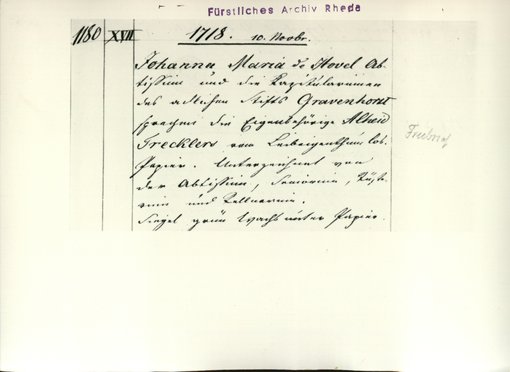 Fürstliches Archiv Rheda
1180 XVII 1718. 10. Novbr.
Johanna Maria de Hovel Ab-
tissinn und die Kapitularinnen
des adlichen Stifts Gravenhorst
sprechen die Eigenbehörige
Trecklers vom Leibeigenthum los.
Papier. Unterzeichnet von
der Abtissinn, Seniorin, Küste-
rin und Kellnerin.
Siegel grün Wachs unter Papier.